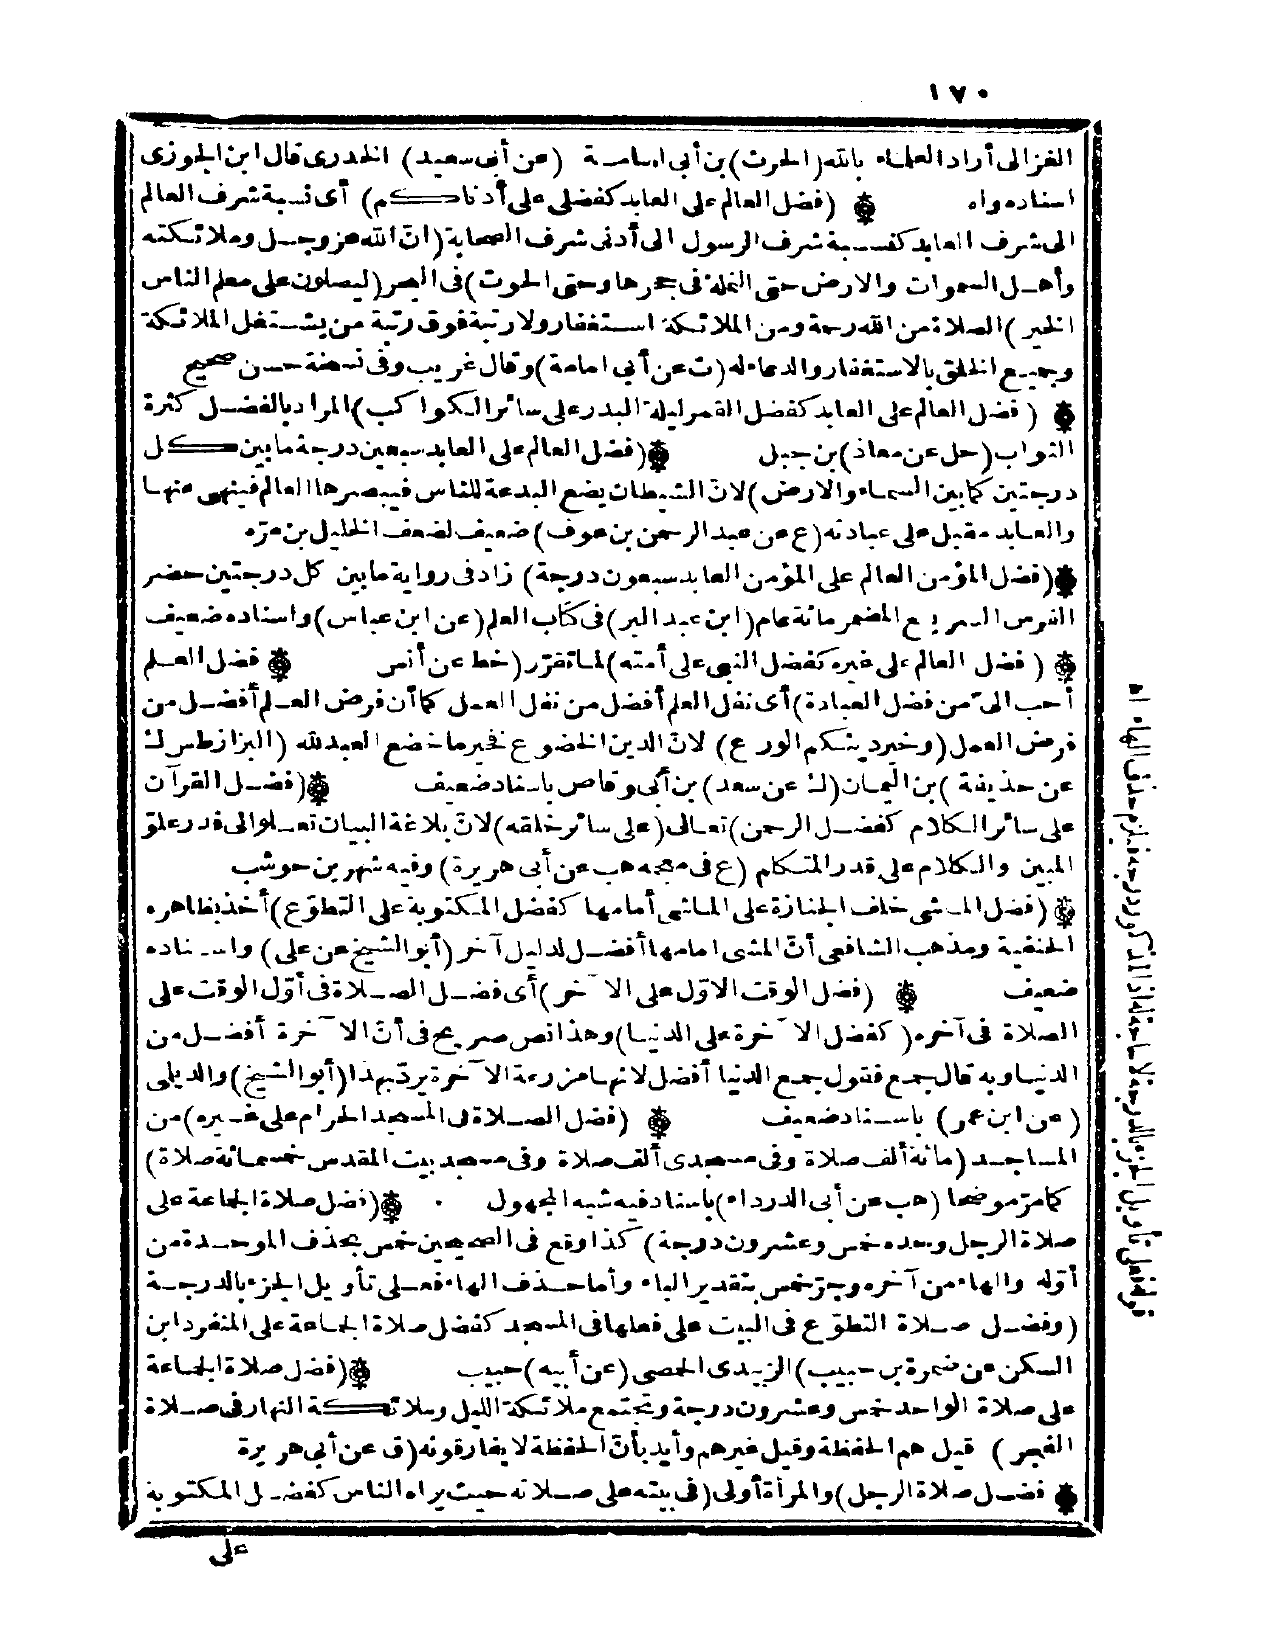 ١٧٠
الغزالى أراد العلماء بالله (الحرث) بن أبى اسامة (عن أبى سعيد) الخدرى قال ابن الجوزى
اسناده واه ۞ (فضل العالم على العابد كفضلى على أدناكم) أى نسبة شرف العالم
الى شرف العابد كنسبة شرف الرسول الى أدنى شرف الصحابة (انّ الله عز وجل وملائكته
وأهل السموات والارض حتى النملة فى جحرها وحتى الحوت) فى البحر (ليصلون على معلم الناس
الخير) الصلاة من الله رحمة ومن الملائكة استغفار ولا رتبة فوق رتبة من يشتغل الملائكة
وجميع الخلق بالاستغفار والدعاء له (ت عن أبى امامة) وقال غريب وفى نسخة حسن صحيح
۞ (فضل العالم على العابد كفضل القمر ليلة البدر على سائر الكواكب) المراد بالفضل كثرة
الثواب (حل عن معاذ) بن جبل ۞ (فضل العالم على العابد سبعين درجة ما بين كل
درجتين كما بين السماء والارض) لانّ الشيطان يضع البدعة للناس فيبصرها العالم فينهى عنها
والعابد مقبل على عبادته (ع عن عبد الرحمن بن عوف) ضعيف لضعف الخليل بن مرّه
۞ (فضل المؤمن العالم على المؤمن العابد سبعون درجة) زاد فى رواية ما بين كل درجتين حضر
الفرس السريع المضمر مائة عام (ابن عبد البر) فى كتاب العلم (عن ابن عباس) واسناده ضعيف
۞ (فضل العالم على غيره كفضل النبى على أمته) لما تقرّر (خط عن أنس ۞ فضل العلم
أحب الىّ من فضل العبادة) أى نفل العلم أفضل من نفل العمل كما أن فرض العلم أفضل من
فرض العمل (وخير دينكم الورع) لانّ الدين الخضوع فخير ما خضع العبد لله (البزار طس ك
عن حذيفة) بن اليمان (ك عن سعد) بن أبى وقاص باسناد ضعيف ۞ (فضل القرآن
على سائر الكلام كفضل الرحمن) تعالى (على سائر خلقه) لانّ بلاغة البيان تعلو الى قدر علوّ
المبين والكلام على قدر المتكلم (ع فى معجمه هب عن أبى هريرة) وفيه شهر بن حوشب
۞ (فضل الماشى خلف الجنازة على الماشى أمامها كفضل المكتوبة على التطوّع) أخذ بظاهره
الحنفية ومذهب الشافعى أنّ المشى امامها أفضل لدليل آخر (أبو الشيخ عن على) واسناده
ضعيف ۞ (فضل الوقت الاوّل على الآخر) أى فضل الصلاة فى أوّل الوقت على
الصلاة فى آخره (كفضل الآخرة على الدنيا) وهذا نص صريح فى أنّ الآخرة أفضل من
الدنيا وبه قال جمع فقول جمع الدنيا أفضل لانها مزرعة الآخرة يردّ بهذا (أبو الشيخ) والديلمى
(عن ابن عمر) باسناد ضعيف ۞ (فضل الصلاة فى المسجد الحرام على غيره) من
المساجد (مائة ألف صلاة وفى مسجدى ألف صلاة وفى مسجد بيت المقدس خمسمائة صلاة)
كما مرّ موضحا (هب عن أبى الدرداء) باسناد فيه شبه المجهول ۞ (فضل صلاة الجماعة على
صلاة الرجل وحده خمس وعشرون درجة) كذا وقع فى الصحيحين خمس بحذف الموحدة من
أوّله والهاء من آخره وجرّ خمس بتقدير الباء وأما حذف الهاء فعلى تأويل الجزء بالدرجة
(وفضل صلاة التطوّع فى البيت على فعلها فى المسجد كفضل صلاة الجماعة على المنفرد ابن
السكن عن ضمرة بن حبيب) الزبيدى الحمصى (عن أبيه) حبيب ۞ (فضل صلاة الجماعة
على صلاة الواحد خمس وعشرون درجة وتجتمع ملائكة الليل وملائكة النهار فى صلاة
الفجر) قيل هم الحفظة وقيل غيرهم وأيد بأنّ الحفظة لا يفارقونه (ق عن أبى هريرة
۞ فضل صلاة الرجل) والمرأة أولى (فى بيته على صلاته حيث يراه الناس كفضل المكتوبة
على
قوله فعلى تأويل الجزء بالدرجة لا حاجة اليه اذ المذكور درجة فيلزم حذف الهاء اه